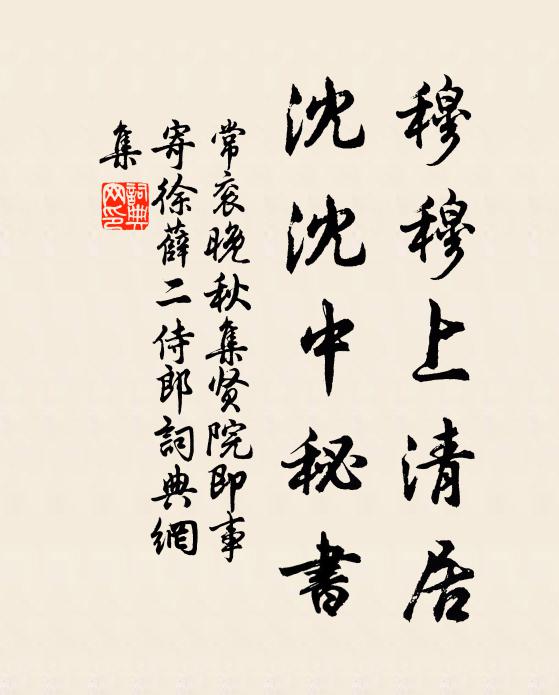 穆穆上清居
沈沈中秘書
常衮晚秋集贤院即事
寄徐薛二侍郎詞典網
集
詞典网印